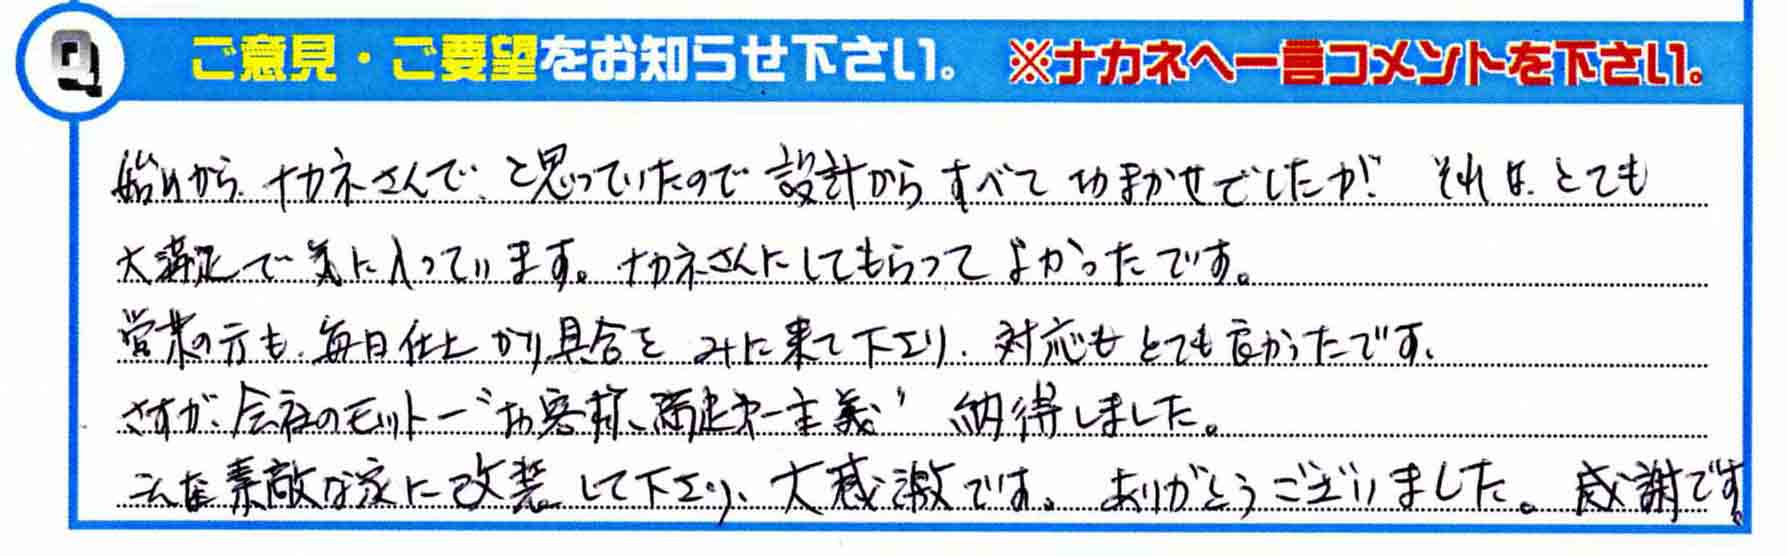 Q ご意見・ご要望をお知らせ下さい。 ※ナカネへ一言コメントを下さい。
始めから、ナカネさんで、と思っていたので設計からすべておまかせでしたが! それは、とても
大満足で気に入っています。ナカネさんにしてもらってよかったです。
営業の方も、毎日仕上がり具合をみに来て下さり、対応もとても良かったです。
さすが、会社のモットー“お客様、満足第一主義” 納得しました。
こんな素敵な家に改装して下さり、大感激です。ありがとうございました。感謝です。